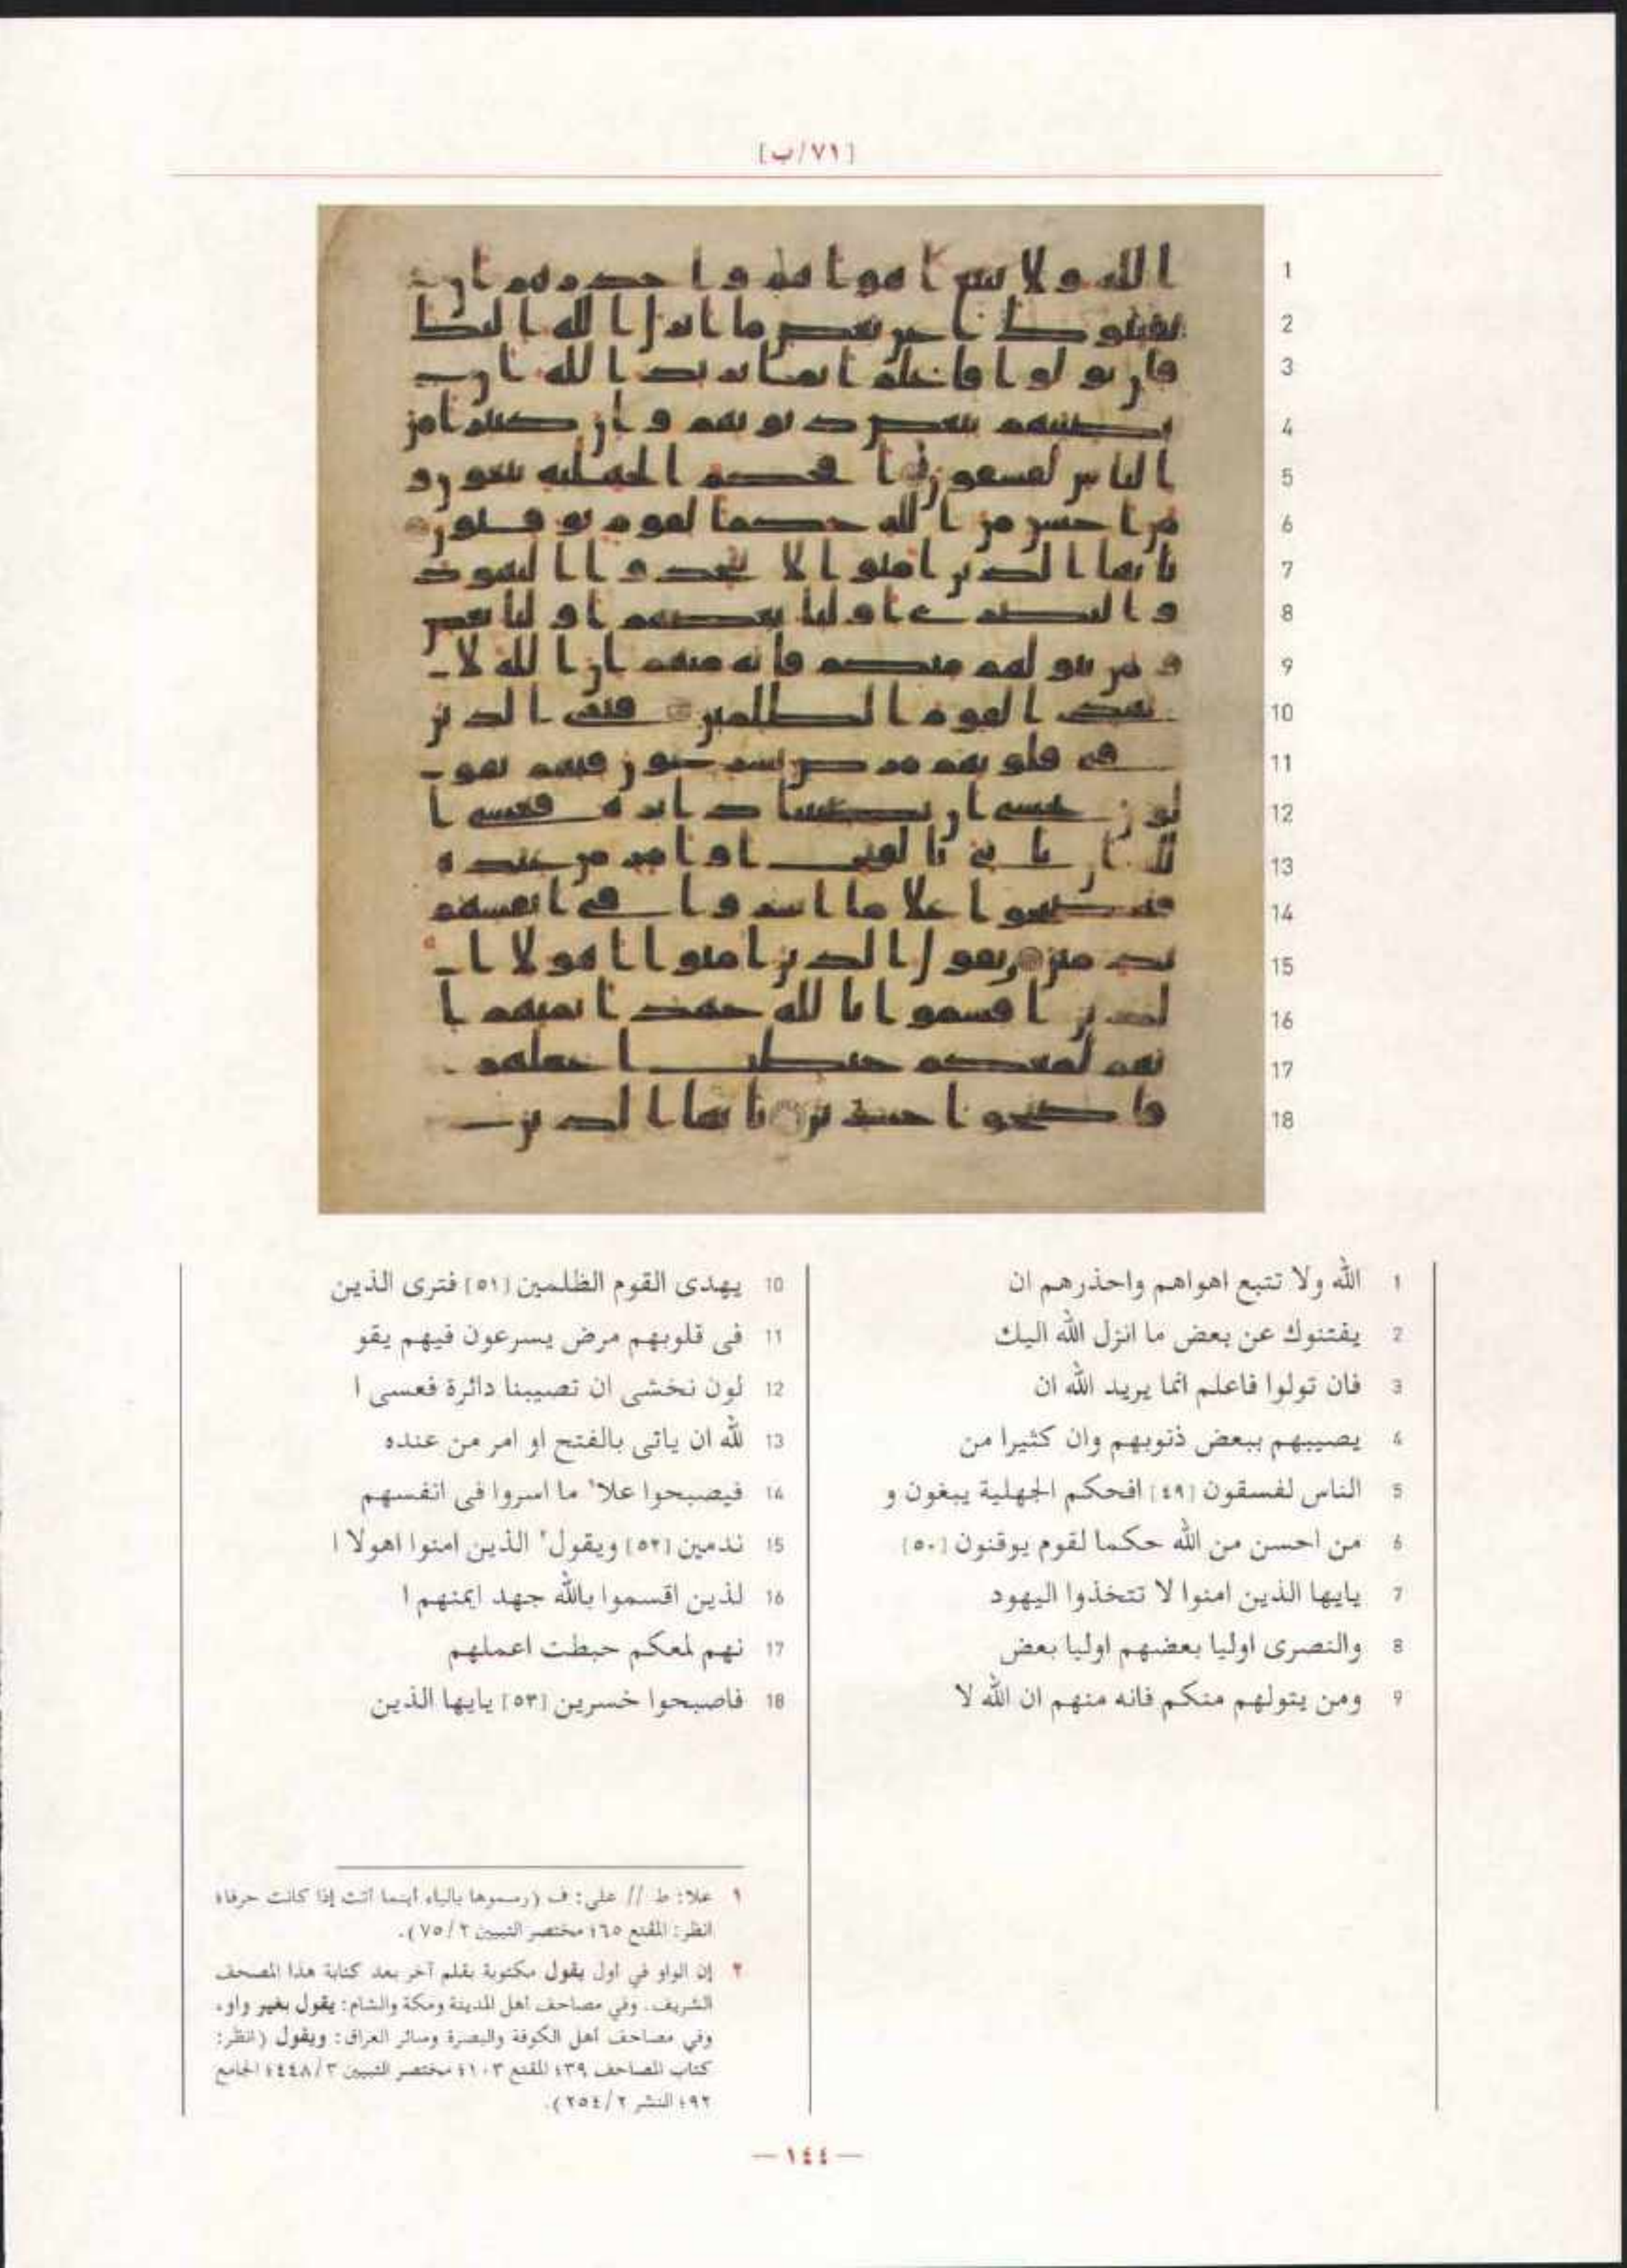 [٧١/ب]
1 الله ولا تتبع اهواهم واحذرهم ان
2 يفتنوك عن بعض ما انزل الله اليك
3 فان تولوا فاعلم انما يريد الله ان
4 يصيبهم ببعض ذنوبهم وان كثيرا من
5 الناس لفسقون [٤٩] افحكم الجهلية يبغون و
6 من احسن من الله حكما لقوم يوقنون [٥٠]
7 يايها الذين امنوا لا تتخذوا اليهود
8 والنصرى اوليا بعضهم اوليا بعض
9 ومن يتولهم منكم فانه منهم ان الله لا
10 يهدى القوم الظلمين [٥١] فترى الذين
11 فى قلوبهم مرض يسرعون فيهم يقو
12 لون نخشى ان تصيبنا دائرة فعسى ا
13 لله ان ياتى بالفتح او امر من عنده
14 فيصبحوا علا١ ما اسروا فى انفسهم
15 ندمين [٥٢] ويقول٢ الذين امنوا اهولا ا
16 لذين اقسموا بالله جهد ايمنهم ا
17 نهم لمعكم حبطت اعملهم
18 فاصبحوا خسرين [٥٣] يايها الذين
١ علا: ط // على: ف (رسموها بالياء أينما أتت إذا كانت حرفا؛
انظر: المقنع ٦٥؛ مختصر التبيين ٢/ ٧٥).
٢ إن الواو في أول يقول مكتوبة بقلم آخر بعد كتابة هذا المصحف
الشريف. وفي مصاحف أهل المدينة ومكة والشام: يقول بغير واو،
وفي مصاحف أهل الكوفة والبصرة وسائر العراق: ويقول (انظر:
كتاب المصاحف ٣٩؛ المقنع ١٠٣؛ مختصر التبيين ٣/ ٤٤٨؛ الجامع
٩٢؛ النشر ٢/ ٢٥٤).
— ١٤٤ —